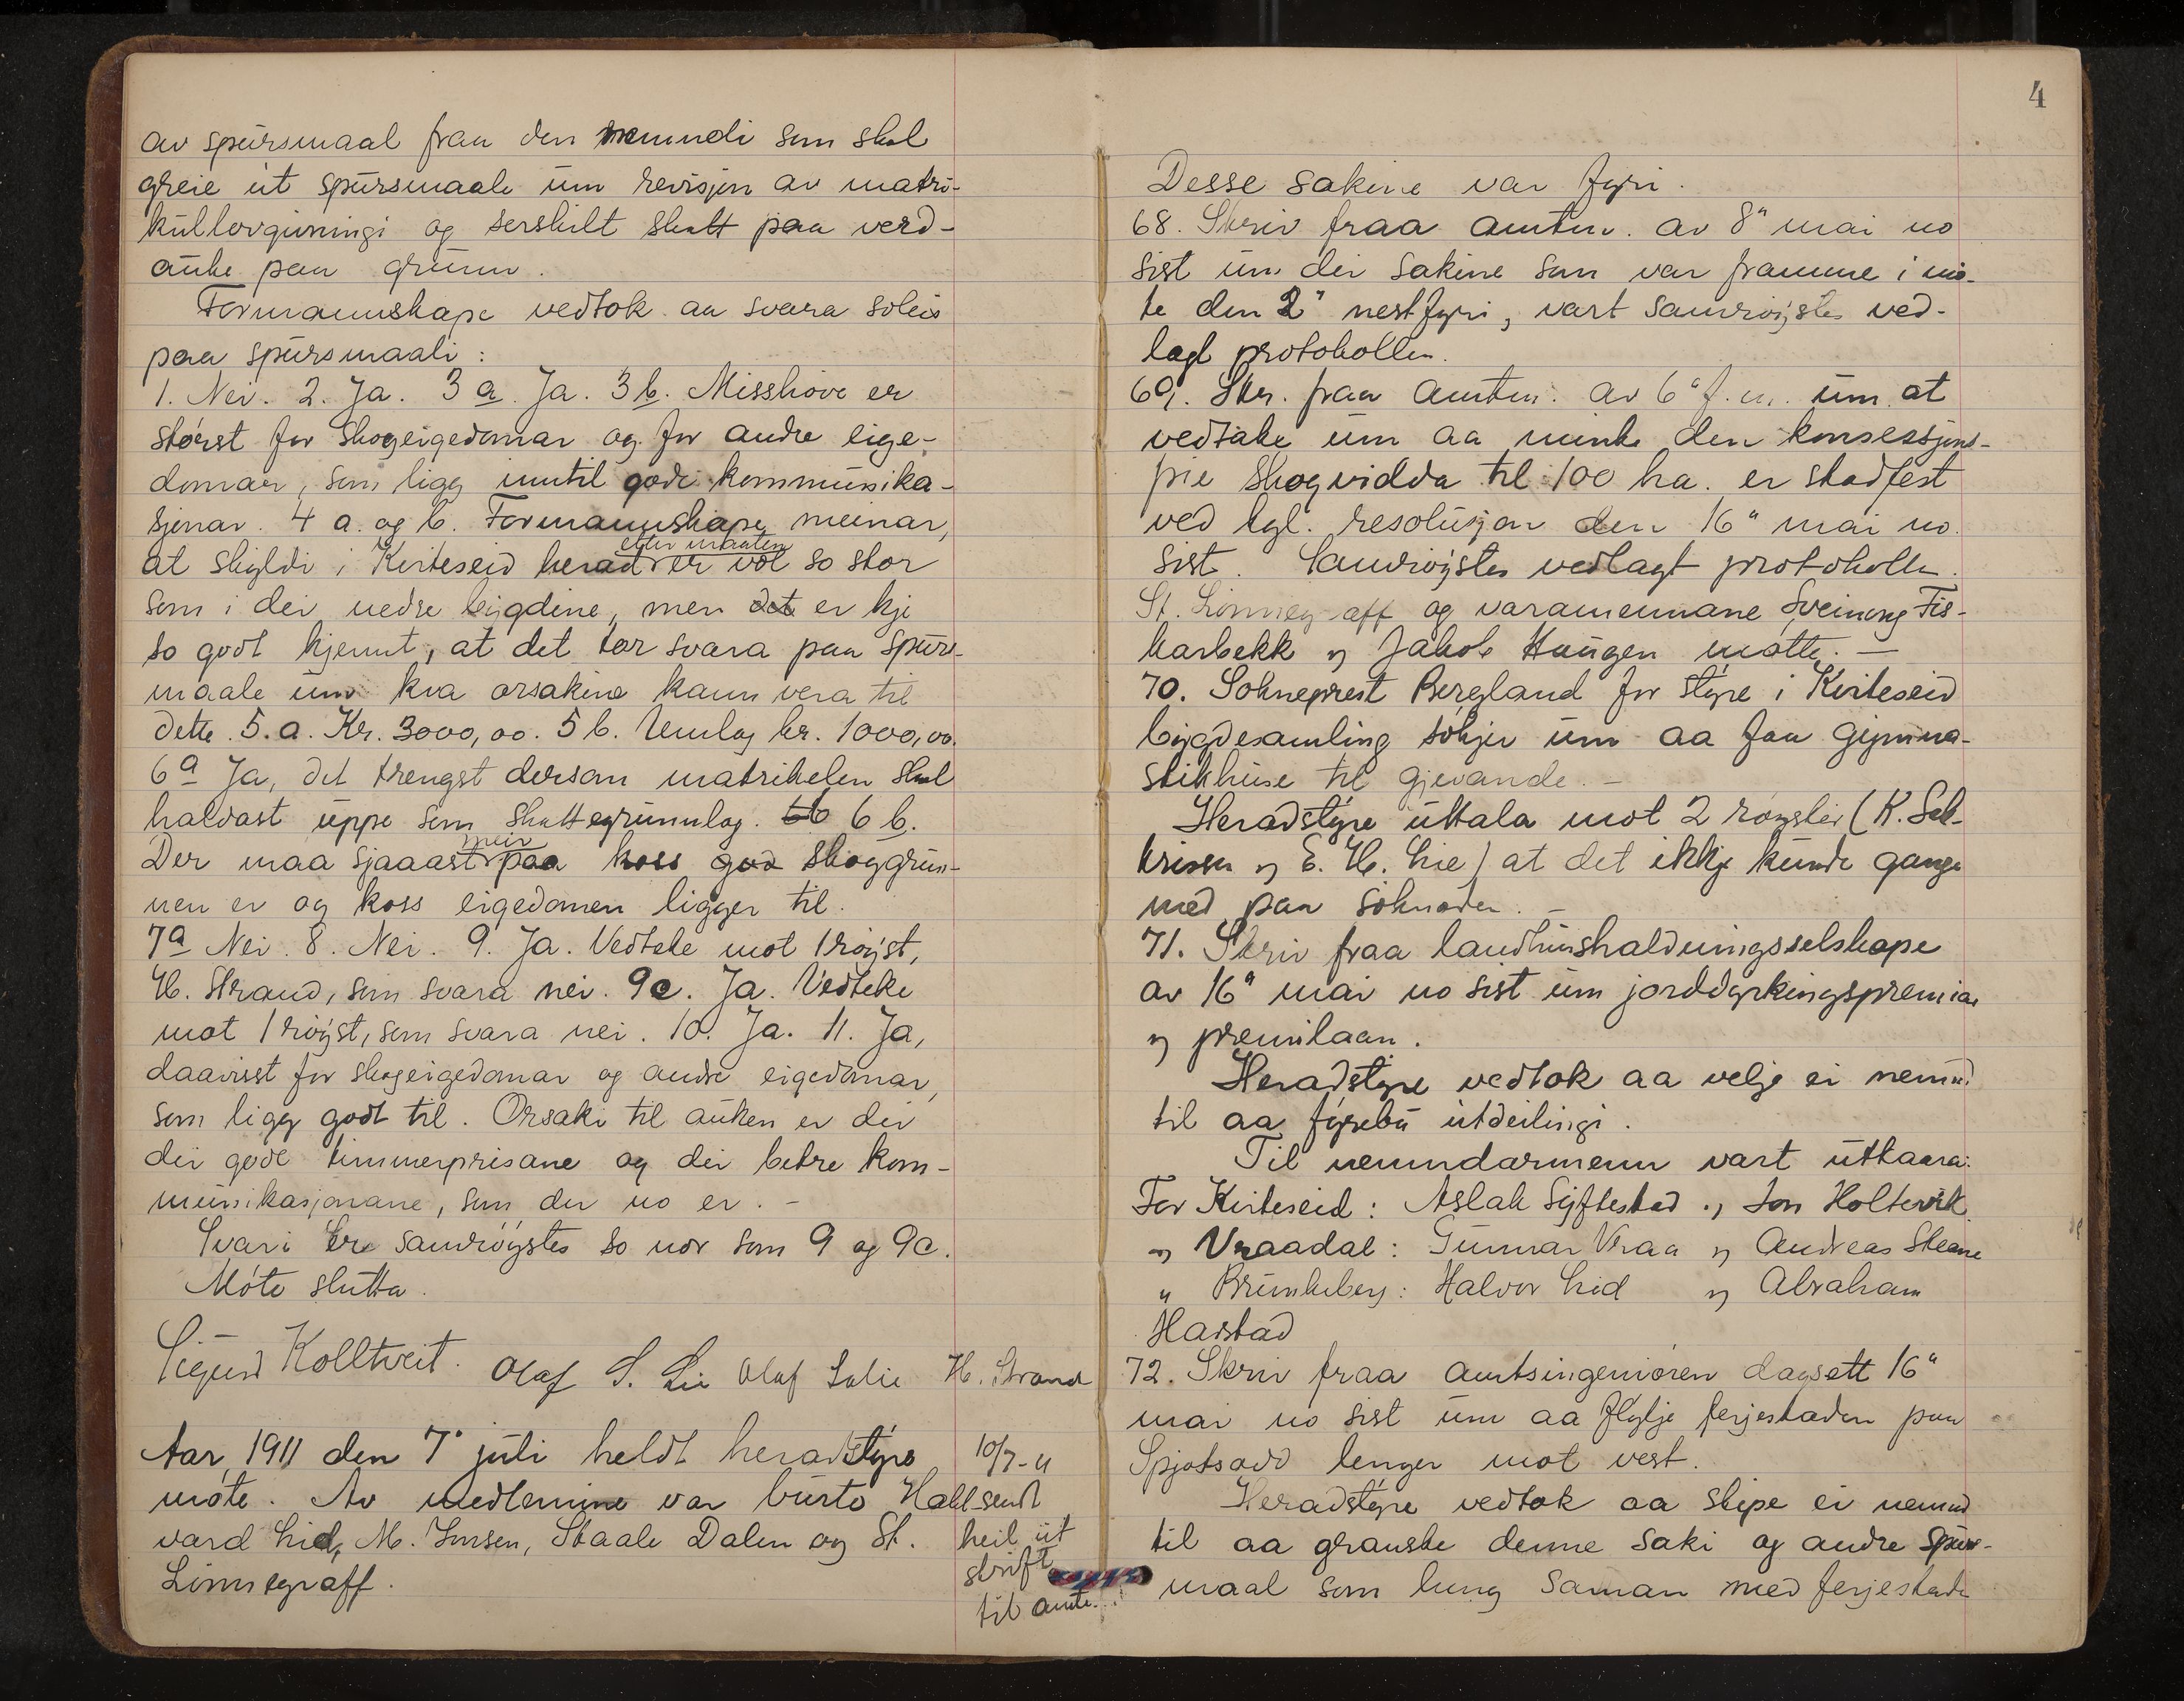 av spursmaal fraa den nemndi som skal
greie ut spursmaale um revisjon av matri-
kullovgivningi og serskilt skatt paa verd-
auke paa grunn.
Formannskape vedtok aa svara soleis
paa spursmaali:
1. Nei. 2. Ja. 3 a. Ja. 3 b. Misshøve er
størst for skogeigedomar og for andre eige-
domar, som ligg inntil gode kommunika-
sjonar. 4 a. og b. Formannskape meinar,
at skyldi i Kviteseid herad etter maaten er vol so stor
som i dei nedre bygdine, men det er kje
so godt kjennt, at det tor svara paa spurs-
maale um kva orsakine kann vera til
dette. 5. a. Kr. 3000,00. 5 b. Umlag kr. 1000,00.
6 a Ja, det trengst dersom matrikelen skal
haldast uppe som skattegrunnlag. 6 b.
Der maa sjaaast meir paa koss god skoggrun-
nen er og koss eigedomen ligger til.
7 a Nei. 8. Nei. 9. Ja. Vedteke mot 1 røyst,
H. Strand, som svara nei. 9 c. Ja. Vedteke
mot 1 røyst, som svara nei. 10. Ja. 11. Ja,
daavisst for skogeigedomar og andre eigedomar,
som ligg godt til. Orsaki til auken er dei
dei gode timmerprisane og dei betre kom-
munikasjonane, som der no er. -
Svari er samrøystes so nær som 9 og 9c.
Møte slutta.
Sigurd Kolltveit. Olaf S. Lie Olaf Lalie H. Strand
Aar 1911 den 7' juli heldt heradstyre
møte. Av medlemine var burte Hall-
vard Lid, M. Jensen, Staale Dalen og St.
Linnegraff.
10/7-11
sendt
heil ut
skrift
til amtm.
4
Desse sakine var fyri.
68. Skriv fraa amtm. av 8" mai no
sist um dei sakine som var framme i mø-
te den 2" nestfyri, vart samrøystes ved-
lagt protokollen.
69. Skr. fraa amtm. av 6" f. m. um at
vedtake um aa minke den konsesjons-
frie skogvidda til 100 ha. er stadfest
ved kgl. resolusjon den 16" mai no
sist. Samrøystes vedlagt protokollen.
St. Linnegraff og varamennane Sveinung Fis-
karbekk og Jakob Haugen møtte. —
70. Sokneprest Bergland for styre i Kviteseid
bygdesamling søkjer um aa faa gymna-
stikhuse til gjevande. -
Heradstyre uttala mot 2 røyster (K. Sel-
krissen og E. H. Lie) at det ikkje kunde gange
med paa søknaden. -
71. Skriv fraa landhushaldningsselskape
av 16" mai no sist um jorddyrkingspremiar
og premilaan.
Heradstyre vedtok aa velje ei nemnd
til aa fyrebu utdeilingi.
Til nemndarmenn vart utkaara:
For Kviteseid: Aslak Syftestad og Jon Holtevik.
" Vraadal: Gunnar Vraa og Andreas Skeane
" Brunkeberg: Halvor Lid og Abraham
Harstad
72. Skriv fraa amtsingeniøren dagsett 16"
mai no sist um aa flytje ferjestaden paa
Spjotsodd lenger mot vest.
Heradstyre vedtok aa skipe ei nemnd
til aa granske denne saki og andre spurs-
maal som heng saman med ferjestade